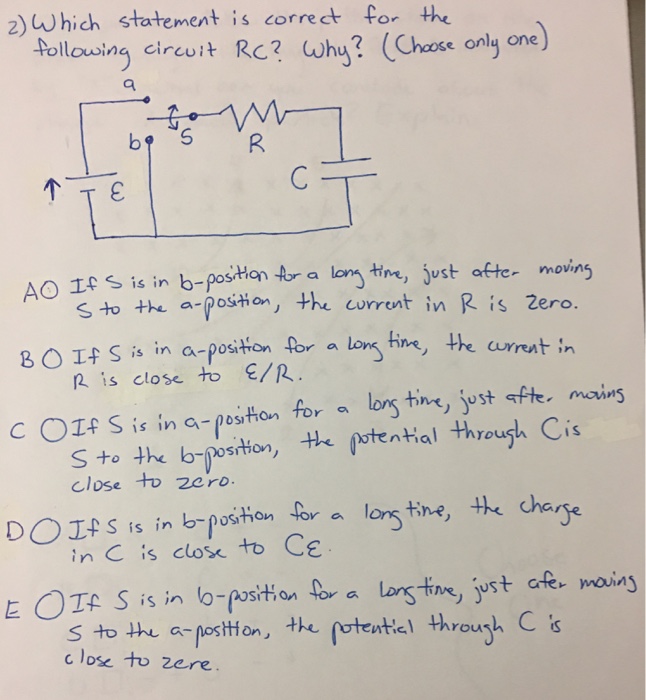 2) Which statement is correct for the
following circuit RC? Why? (Choose only one)
a
b
S
R
C
↑
ε
A If S is in b-position for a long time, just after moving
S to the a-position, the current in R is zero.
B If S is in a-position for a long time, the current in
R is close to ε/R.
C If S is in a-position for a long time, just after moving
S to the b-position, the potential through C is
close to zero.
D If S is in b-position for a long time, the charge
in C is close to Cε.
E If S is in b-position for a long time, just afer moving
S to the a-position, the potential through C is
close to zere.